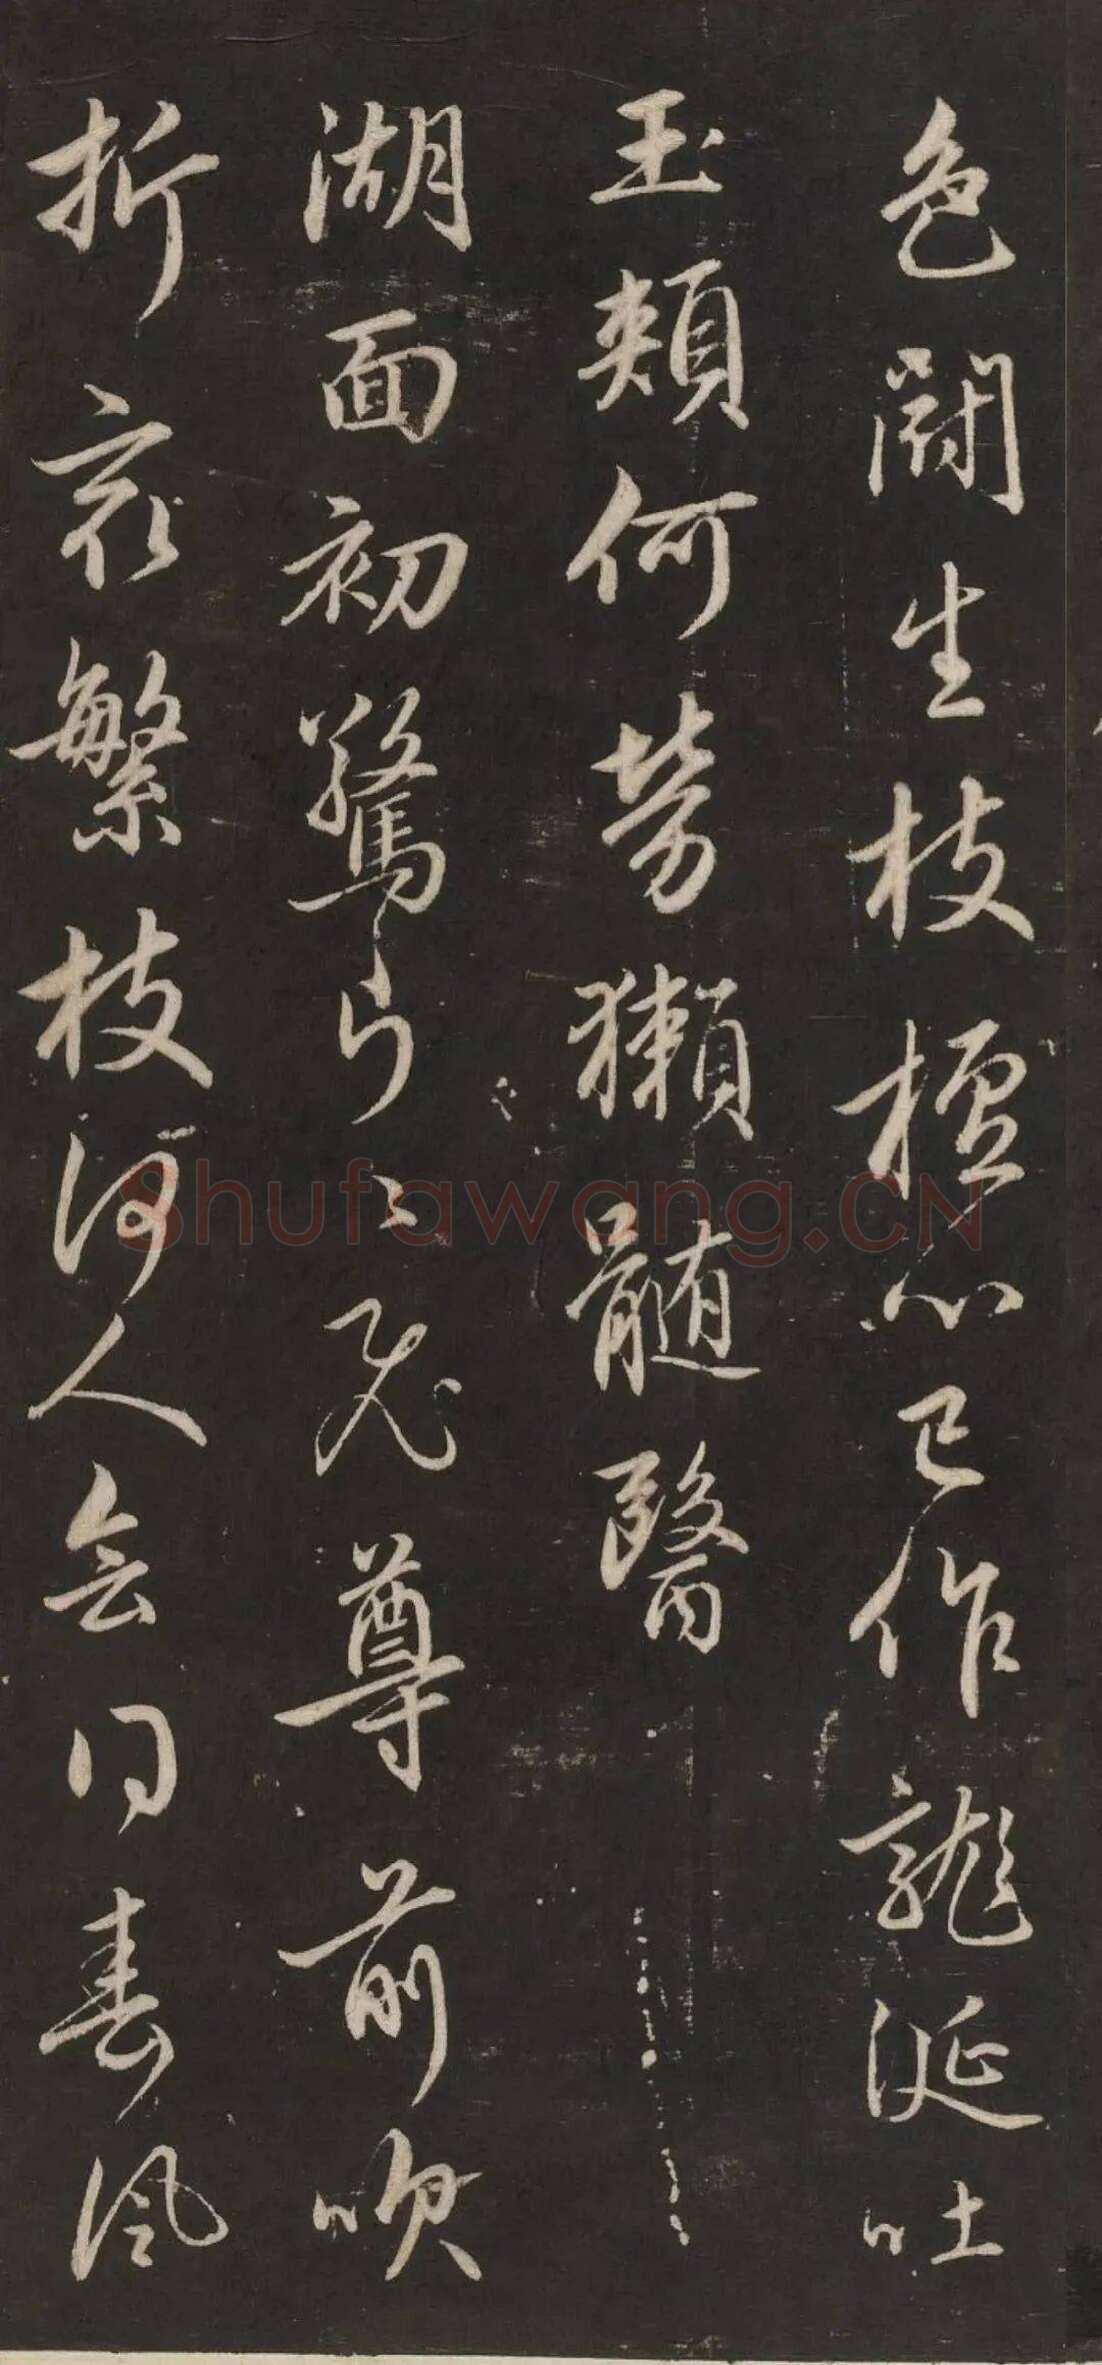 色鬪生枝檀心已作龍涎吐
玉頰何勞獺髓醫
湖面初驚片〻飛尊前吹
折最繁枝何人會得春風
Shufawang.CN